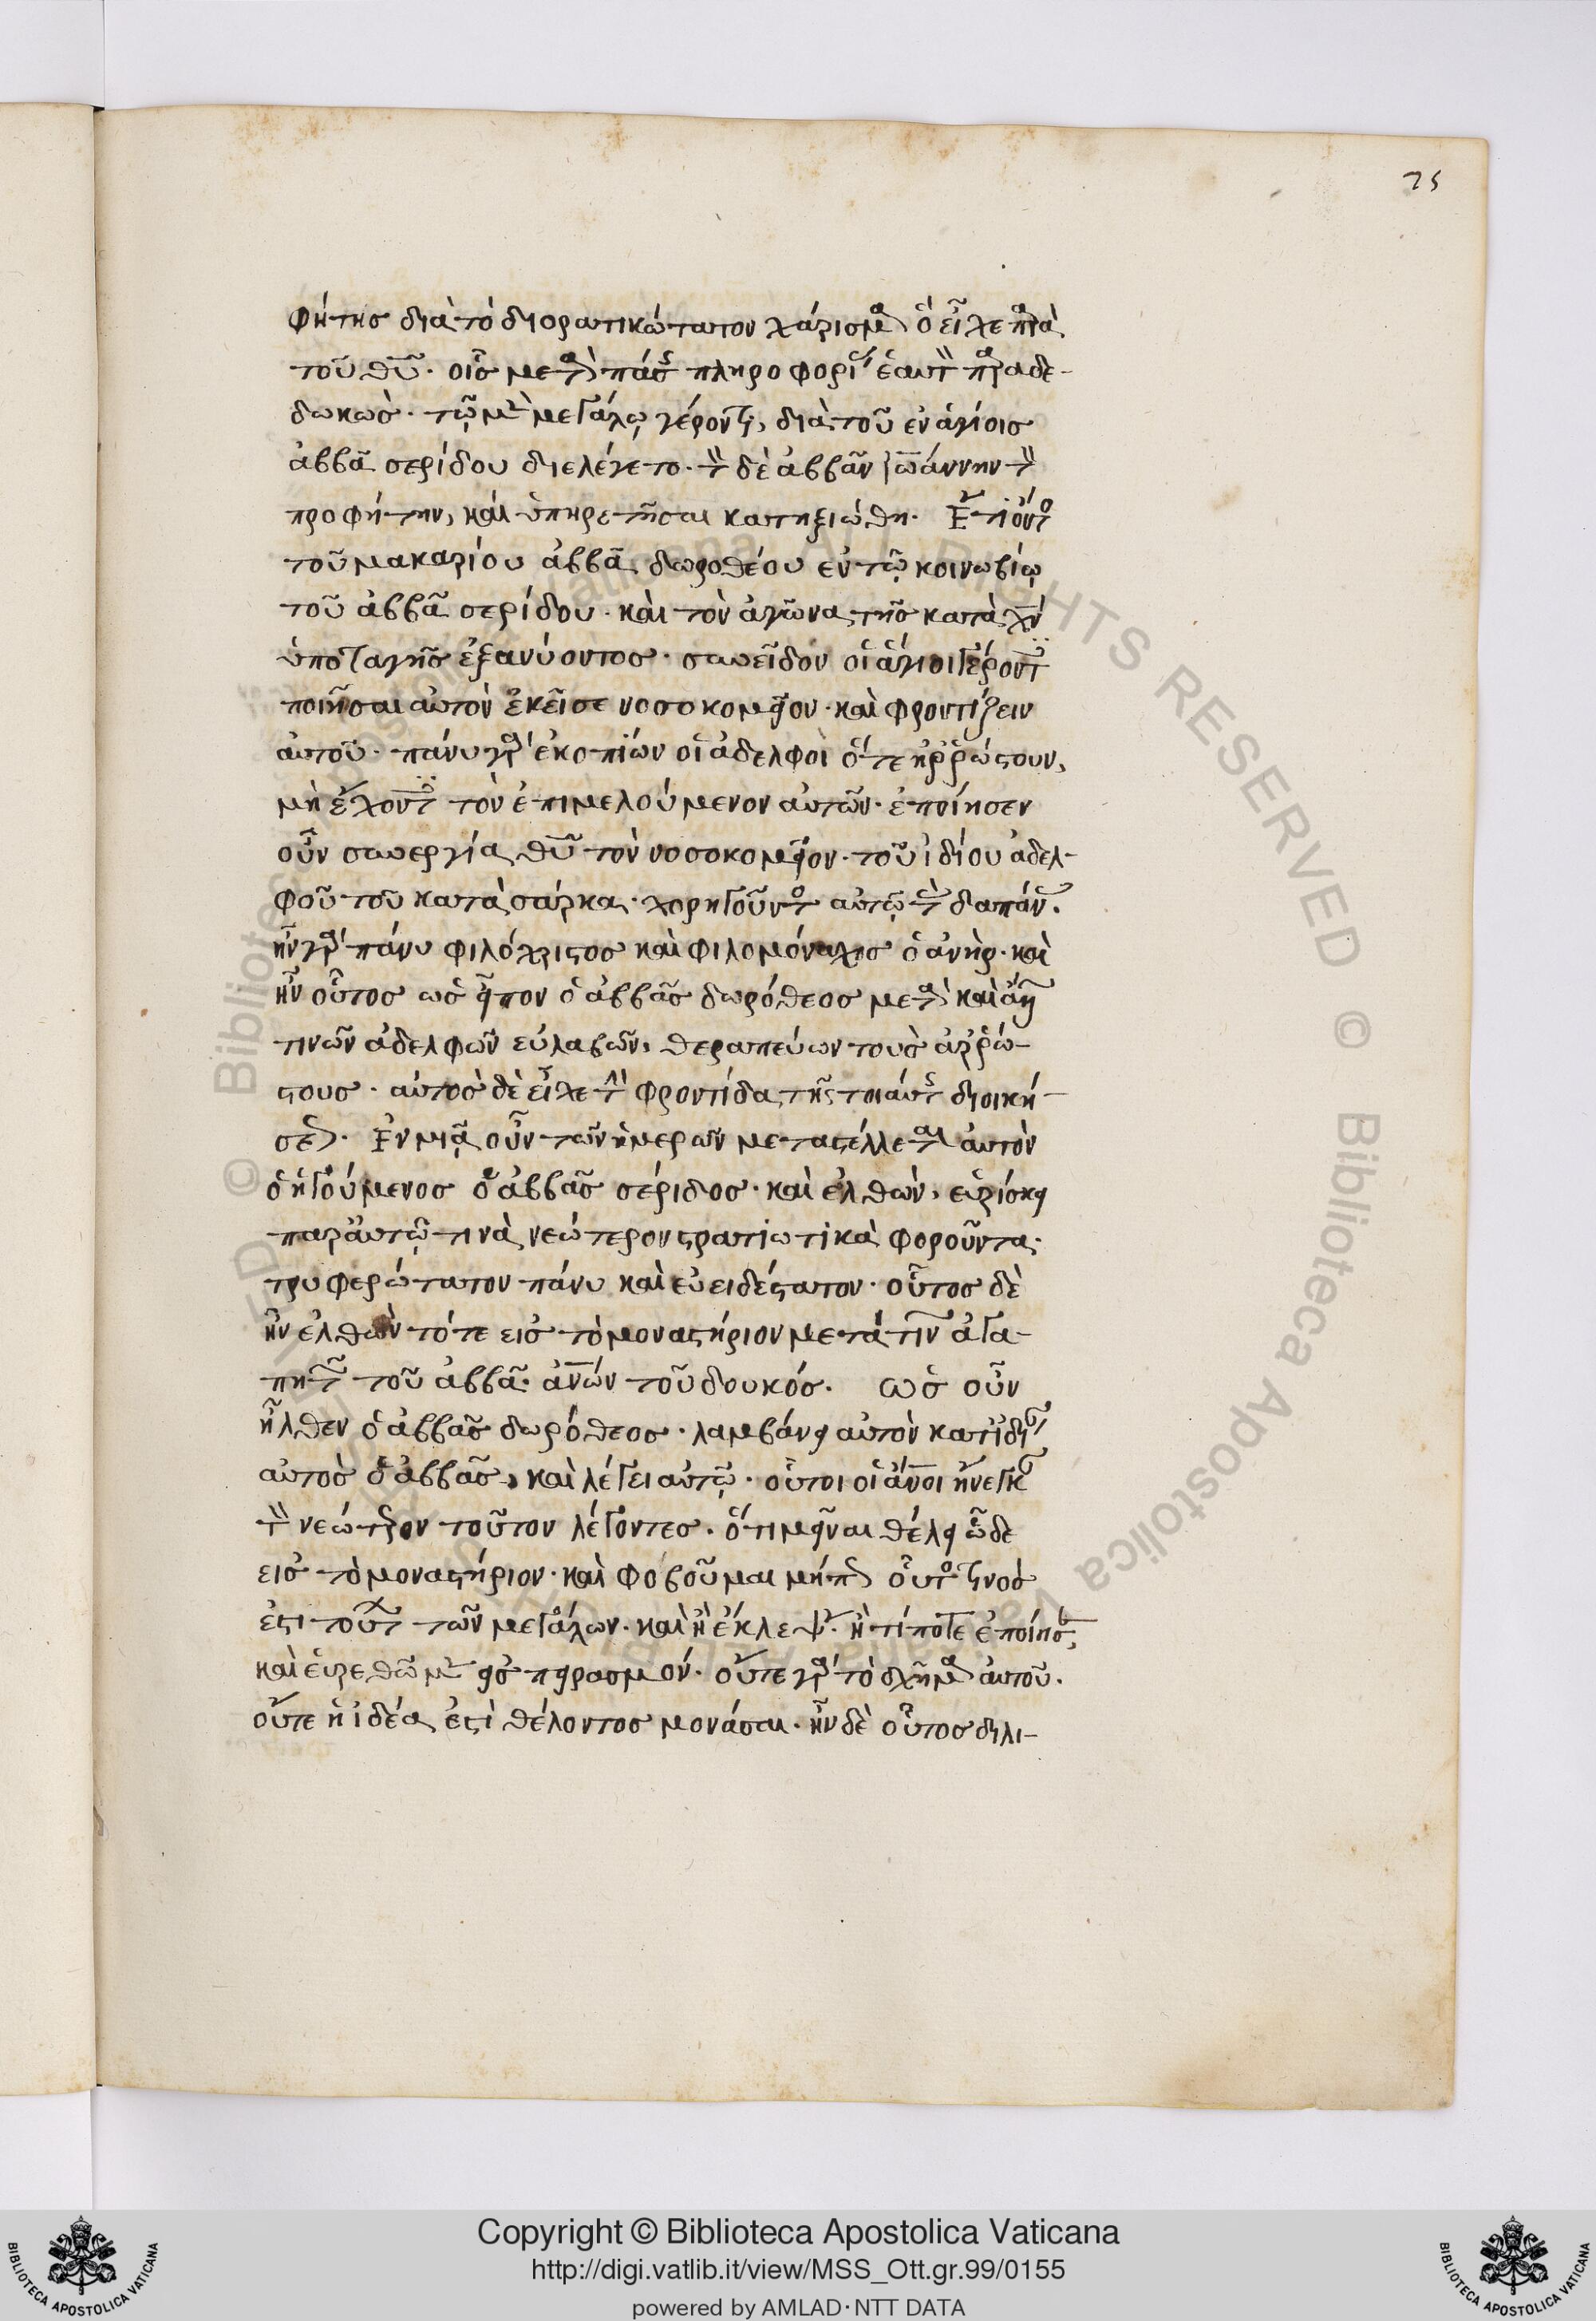 75
φήτης διὰ τὸ διορατικώτατον χάρισμα ὃ εἶχε παρὰ
τοῦ θῦ. οἷς μετὰ πάσης πληροφορίας ἑαυτὸν παραδε-
δωκὼς. τῷ μὲν μεγάλῳ γέροντι, διὰ τοῦ ἐν ἁγίοις
ἀββᾶ σερίδου διελέγετο. τὸν δὲ ἀββᾶν ἰωάννην τὸν
προφήτην, καὶ ὑπηρετῆσαι κατηξιώθη. Ἔτι ὄντος
τοῦ μακαρίου ἀββᾶ δωροθέου ἐν τῷ κοινωβίῳ
τοῦ ἀββᾶ σερίδου. καὶ τὸν ἀγῶνα τῆς κατὰ χν
ὑποταγῆς ἐξανύοντος. συνεῖδον οἱ ἅγιοι γέροντες
ποιῆσαι αὐτὸν ἐκεῖσε νοσοκομεῖον. καὶ φροντίζειν
αὐτοῦ. πάνυ γὰρ ἐκοπίων οἱ ἀδελφοὶ ὅτε ἠρρώστουν,
μὴ ἔχοντες τὸν ἐπιμελούμενον αὐτῶν. ἐποίησεν
οὖν συνεργία θῦ τὸν νοσοκομεῖον. τοῦ ἰδίου ἀδελ-
φοῦ τοῦ κατὰ σάρκα. χορηγοῦντος αὐτῷ τὰς δαπάνας.
ἦν γὰρ πάνυ φιλόχριστος καὶ φιλομόναχος ὁ ἀνὴρ. καὶ
ἦν οὗτος ὡς εἶπον ὁ ἀββᾶς δωρόθεος μετὰ καὶ
τινῶν ἀδελφῶν εὐλαβῶν, θεραπεύων τοὺς ἀρρώ-
στους. αὐτὸς δὲ εἶχε τὴν φροντίδα τῆς τοιαύτης διοική-
σεως. Ἐν μιᾷ οὖν τῶν ἡμερῶν μεταστέλλεται αὐτὸν
ὁ ἡγούμενος ὁ ἀββᾶς σέριδος. καὶ ἐλθὼν, εὑρίσκει
παρ' αὐτῷ τινὰ νεώτερον στρατιωτικὰ φοροῦντα.
τρυφερώτατον πάνυ καὶ εὐειδέστατον. οὗτος δὲ
ἦν ἐλθὼν τότε εἰς τὸ μοναστήριον μετά τινων ἀγα-
πητῶν τοῦ ἀββᾶ. ἀνων τοῦ δουκός. Ὡς οὖν
ἦλθεν ὁ ἀββᾶς δωρόθεος. λαμβάνει αὐτὸν κατιδίαν
αὐτὸς ὁ ἀββᾶς, καὶ λέγει αὐτῷ. οὗτοι οἱ ἀνοι ἤνεγκαν
τὸν νεώτερον τοῦτον λέγοντες. ὅτι μεῖναι θέλει ὧδε
εἰς τὸ μοναστήριον. καὶ φοβοῦμαι μήπως οὗτος τινὸς
ἐστι τούτων τῶν μεγάλων. καὶ ἢ ἔκλεψεν. ἢ τίποτε ἐποίησεν,
καὶ εὑρεθῶμεν εἰς πειρασμόν. οὔτε γὰρ τὸ σχῆμα αὐτοῦ.
οὔτε ἡ ἰδέα ἐστὶ θέλοντος μονάσαι. ἦν δὲ οὗτος διλι-
Copyright © Biblioteca Apostolica Vaticana
http://digi.vatlib.it/view/MSS_Ott.gr.99/0155
powered by AMLAD·NTT DATA